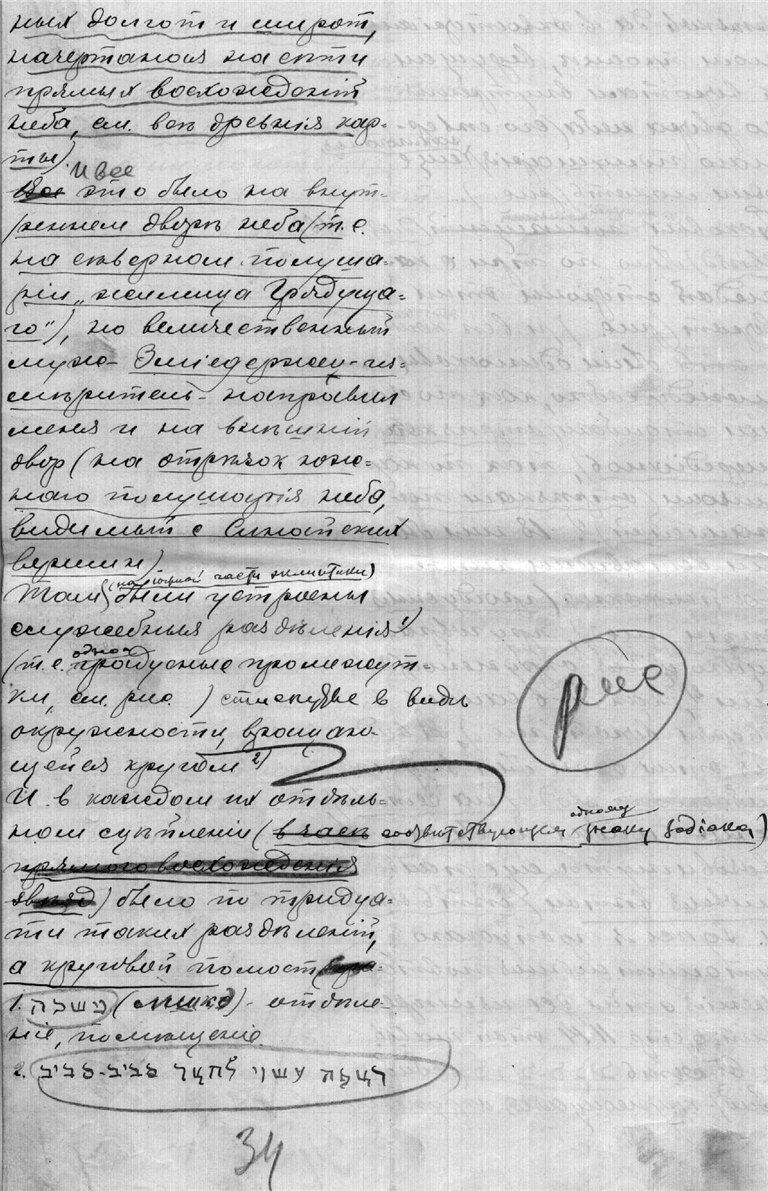 ных долгот и широт,
начертанная на сети
прямых восхождений
неба, см. все древнія кар-
ты).
И все
это было на внут-
реннем дворѣ неба (т.е.
на сѣверном полуша-
ріи „жилища Грядуща-
го“), но величественный
муж - Змiедержец-из-
мѣритель - направил
меня и на внѣшній
двор (на отрѣзок юж-
наго полушарія неба,
видимый с Синайских
вершин)
(на южной части эклиптики)
Там были устроены
служебныя раздѣленія 1)
одног
(т.е. градусные промежут-
ки, см. рис. ) в видѣ
окружности, вращаю-
щейся кругом 2)
рис
И в каждом их отдѣль-
одному
ном сцѣпленіи (в часѣ соотвѣтствующем знаку зодіака)
прямого восхождения
) было по тридца-
ти таких раздѣленій,
а круговой помост
1. לשכה (лишке) - отдѣле-
ніе, помѣщеніе
2. רצפה עשוי לחצר סביב-סביב
34